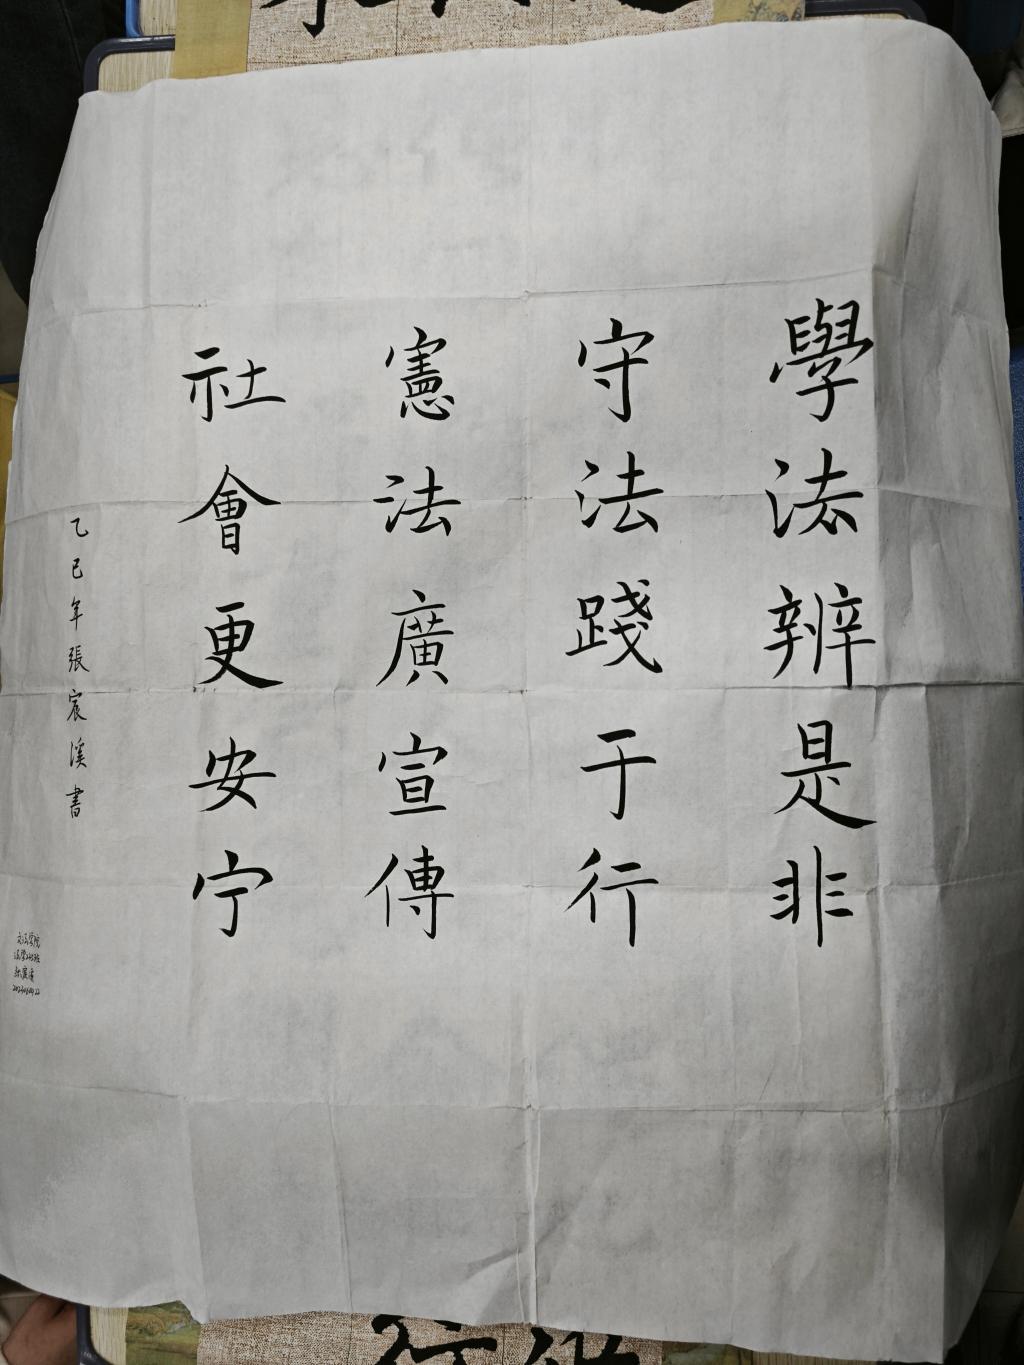 學法辨是非
守法踐于行
憲法廣宣傳
社會更安宁
乙巳年張宸溪書